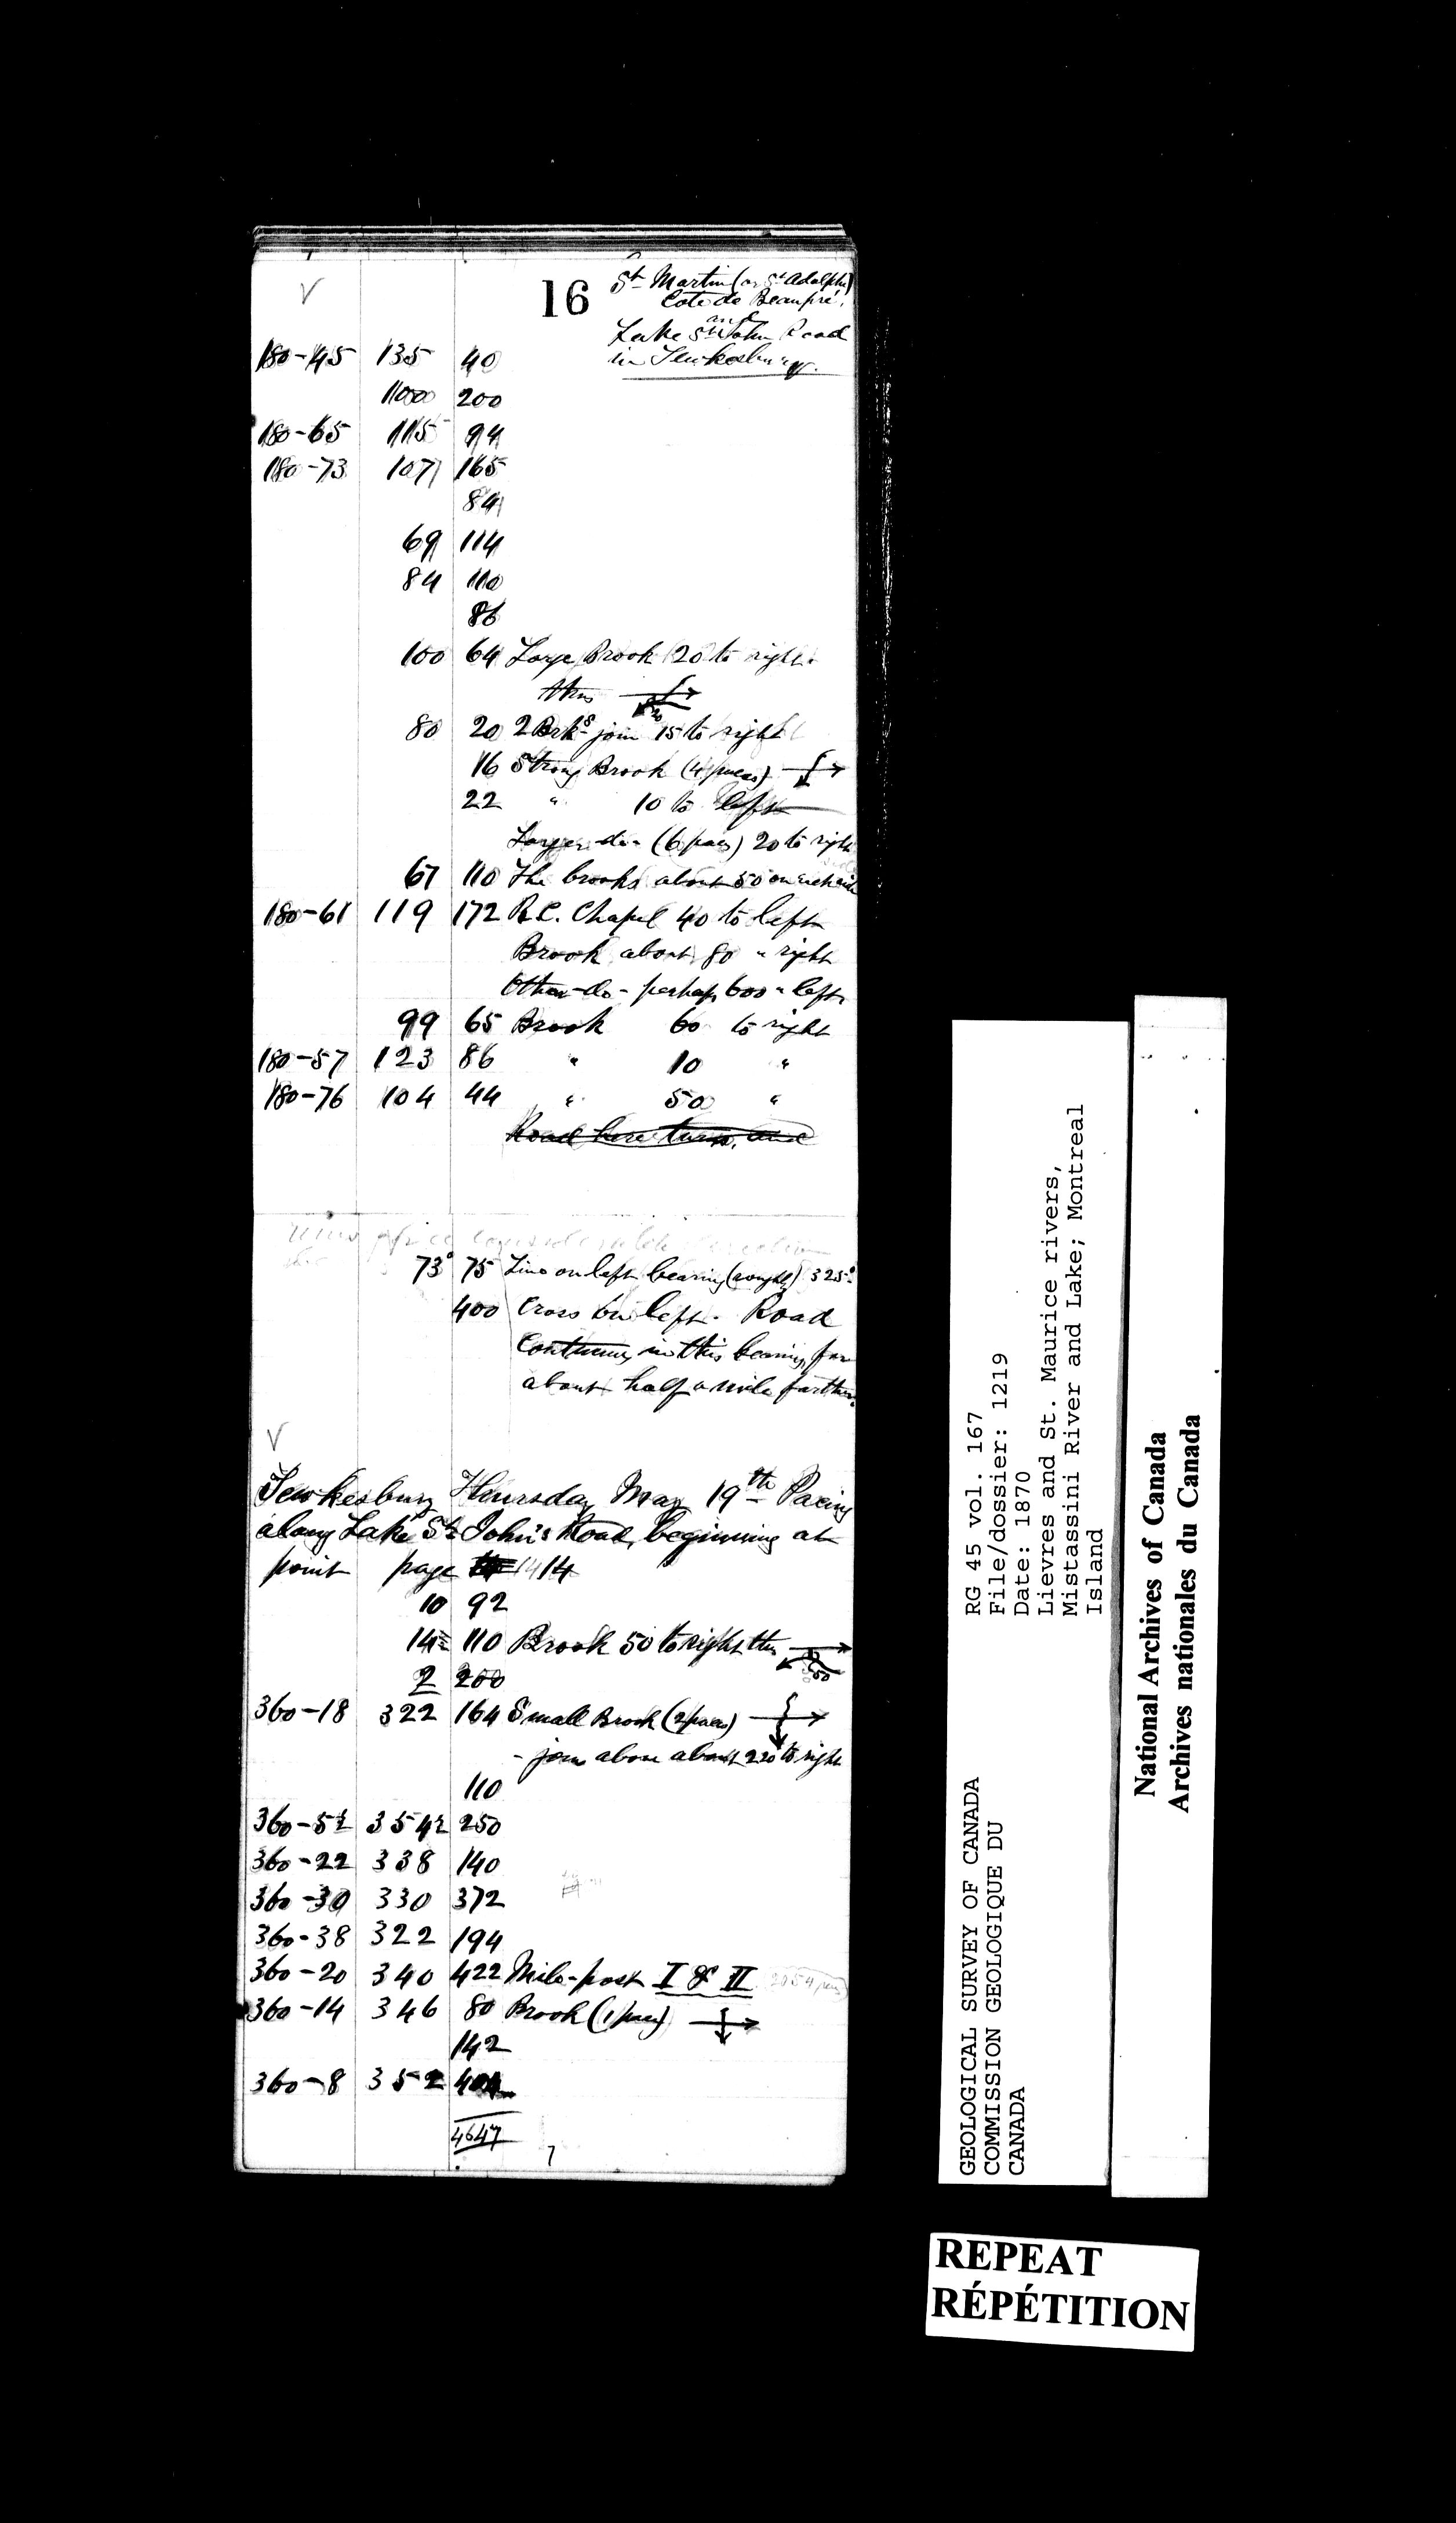 16 St Martin (or St Adolphe)
Cote de Beaupré,
and
Lake St John Road
in Tewkesbury.
V
180-45 135 40
1000 200
180-65 115 94
180-73 107 165
84
69 114
84 110
86
100 64 Large Brook 20 to right
thus 20
80 20 2 Brks join 15 to right
16 Strong Brook (4 paces)
22 " 10 to left
Larger do- (6 paces) 20 to right
67 110 The brooks about 50 on each side
180-61 119 172 R.C. Chapel 40 to left
Brook about 80 " right
Other -do- perhaps 600 " left
99 65 Brook 60 to right
180-57 123 86 " 10 "
180-76 104 44 " 50 "
Road here turns, and
73° 75 Line on left bearing (roughly) 325°
400 Cross on left. Road
continues in this bearing for
about half a mile farther.
V
Tewkesbury Thursday May 19th Pacing
along Lake St John's Road, beginning at
point page 14
10 92
14½ 110 Brook 50 to right thus 50
2 200
360-18 322 164 Small Brook (2 paces)
- joins above about 220 to right
110
360-5½ 354½ 250
360-22 338 140
360-30 330 372
360-38 322 194
360-20 340 422 Mile-post I & II
360-14 346 80 Brook (1 pace)
142
360-8 352
4647
RG 45 vol. 167
File/dossier: 1219
Date: 1870
Lievres and St. Maurice rivers,
Mistassini River and Lake; Montreal
Island
GEOLOGICAL SURVEY OF CANADA
COMMISSION GEOLOGIQUE DU
CANADA
National Archives of Canada
Archives nationales du Canada
REPEAT
RÉPÉTITION